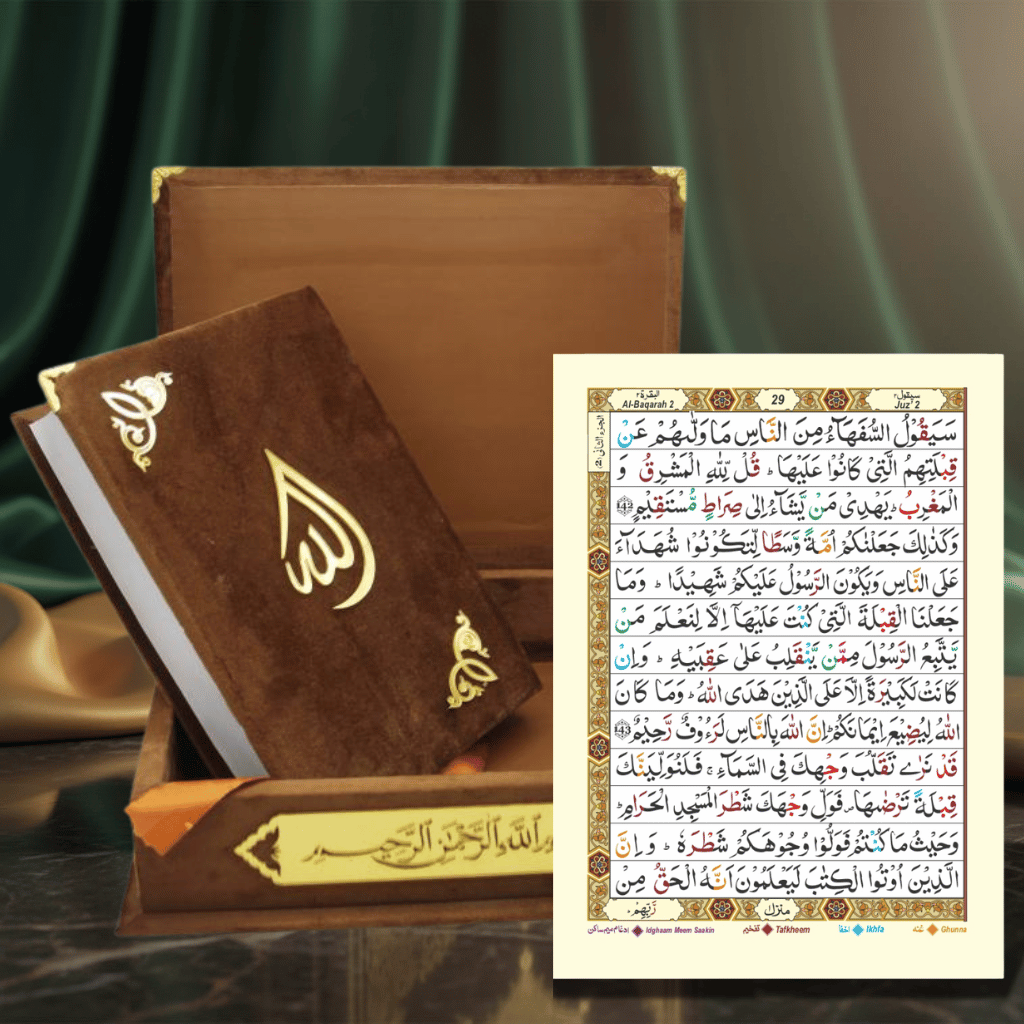 الله
بسم اللّٰه الرحمن الرحيم
البقرة ٢
Al-Baqarah 2
29
سيقول ٢
Juz' 2
سَيَقُوْلُ السُّفَهَآءُ مِنَ النَّاسِ مَا وَلّٰىهُمْ عَنْ
قِبْلَتِهِمُ الَّتِيْ كَانُوْا عَلَيْهَا ؕ قُلْ لِّلّٰهِ الْمَشْرِقُ وَ
الْمَغْرِبُ ؕ يَهْدِيْ مَنْ يَّشَآءُ اِلٰى صِرَاطٍ مُّسْتَقِيْمٍ 142
وَكَذٰلِكَ جَعَلْنٰكُمْ اُمَّةً وَّسَطًا لِّتَكُوْنُوْا شُهَدَآءَ
عَلَى النَّاسِ وَيَكُوْنَ الرَّسُوْلُ عَلَيْكُمْ شَهِيْدًا ؕ وَمَا
جَعَلْنَا الْقِبْلَةَ الَّتِيْ كُنْتَ عَلَيْهَآ اِلَّا لِنَعْلَمَ مَنْ
يَّتَّبِعُ الرَّسُوْلَ مِمَّنْ يَّنْقَلِبُ عَلٰى عَقِبَيْهِ ؕ وَاِنْ
كَانَتْ لَكَبِيْرَةً اِلَّا عَلَى الَّذِيْنَ هَدَى اللّٰهُ ؕ وَمَا كَانَ
اللّٰهُ لِيُضِيْعَ اِيْمَانَكُمْ ؕ اِنَّ اللّٰهَ بِالنَّاسِ لَرَءُوْفٌ رَّحِيْمٌ 143
قَدْ نَرٰى تَقَلُّبَ وَجْهِكَ فِي السَّمَآءِ ۚ فَلَنُوَلِّيَنَّكَ
قِبْلَةً تَرْضٰىهَا ۪ فَوَلِّ وَجْهَكَ شَطْرَ الْمَسْجِدِ الْحَرَامِ ؕ
وَحَيْثُ مَا كُنْتُمْ فَوَلُّوْا وُجُوْهَكُمْ شَطْرَهٗ ؕ وَاِنَّ
الَّذِيْنَ اُوْتُوا الْكِتٰبَ لَيَعْلَمُوْنَ اَنَّهُ الْحَقُّ مِنْ
رَّبِّهِمْ
منزل
ادغام ميم ساكن Idghaam Meem Saakin
تفخيم Tafkheem
اخفا Ikhfa
غنه Ghunna